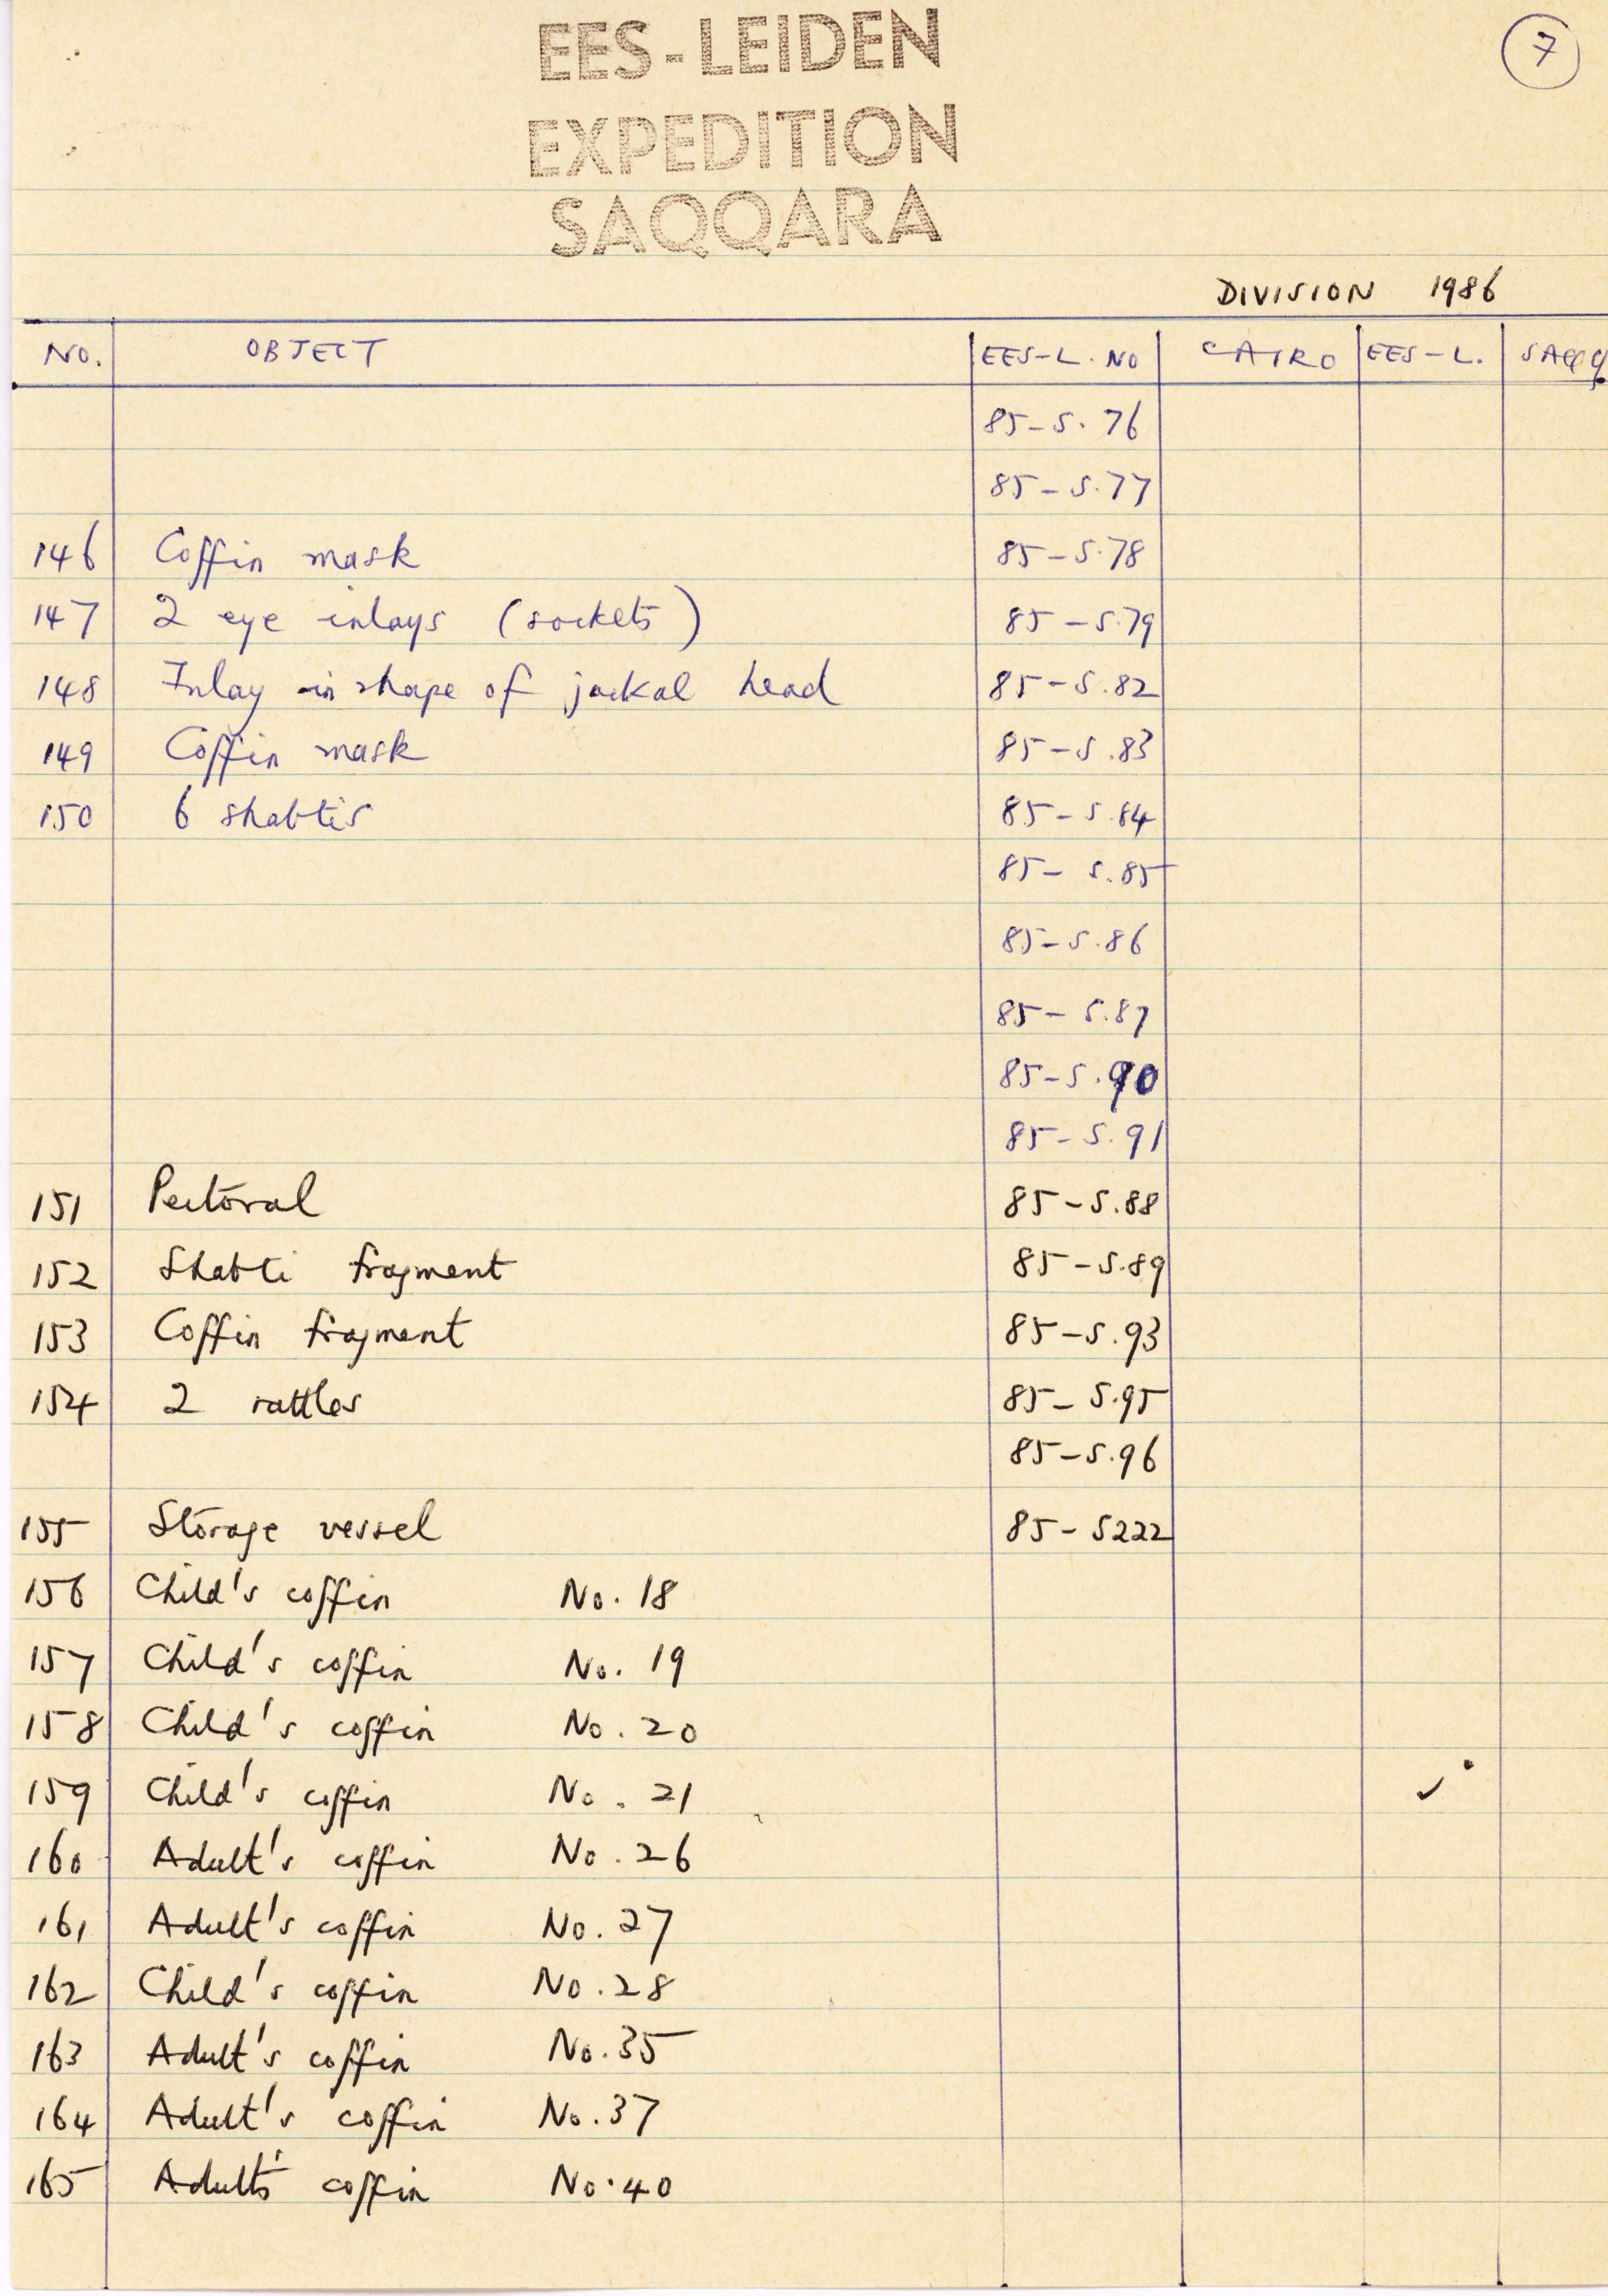 EES-LEIDEN
EXPEDITION
SAQQARA
7
DIVISION 1986
NO. OBJECT EES-L. NO CAIRO EES-L. SAQQ
85-S. 76
85-S.77
146 Coffin mask 85-S.78
147 2 eye inlays (sockets) 85-S.79
148 Inlay in shape of jackal head 85-S.82
149 Coffin mask 85-S.83
150 6 shabtis 85-S.84
85-S.85
85-S.86
85-S.87
85-S.90
85-S.91
151 Pectoral 85-S.88
152 Shabti fragment 85-S.89
153 Coffin fragment 85-S.93
154 2 rattles 85-S.95
85-S.96
155 Storage vessel 85-S222
156 Child's coffin No. 18
157 Child's coffin No. 19
158 Child's coffin No. 20
159 Child's coffin No. 21 ✓
160 Adult's coffin No. 26
161 Adult's coffin No. 27
162 Child's coffin No. 28
163 Adult's coffin No. 35
164 Adult's coffin No. 37
165 Adult's coffin No. 40